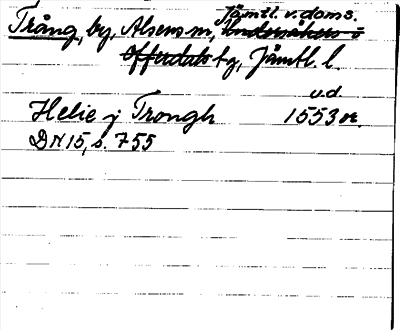 Jämtl. v. doms.
Trång, by, Alsens sn, Undersåkers o
Offerdals tg, Jämtl. l.
vd
Helie j Trongh 1553 or.
DN 15, s. 755